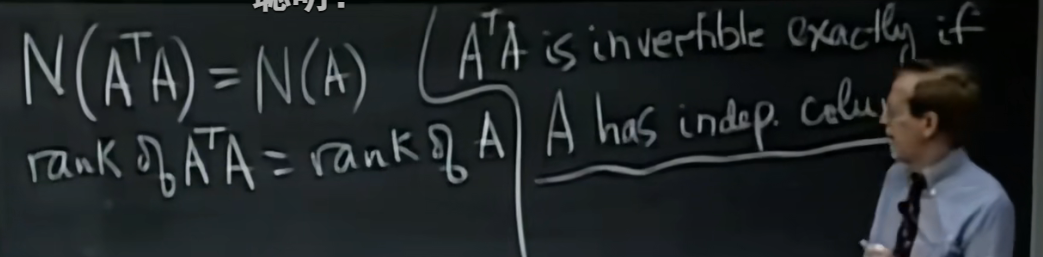 N(AᵀA) = N(A)
rank of AᵀA = rank of A
AᵀA is invertible exactly if
A has indep.